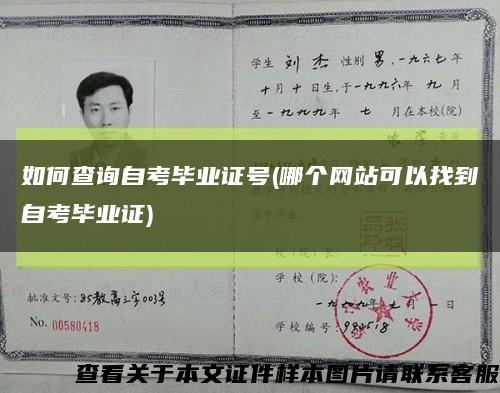 学生 刘杰 性别 男，一九六七年
十月十日生，于一九九六年 九月
至一九九九年 七月在本校(院)
农学 专业
如何查询自考毕业证号(哪个网站可以找到
自考毕业证)
准予毕业。
校 (院) 长：
学 校 (院)：
批准文号：85教高三字003号
一九九九年七月一日
No. 00580418
学校编号：990518
查看关于本文证件样本图片请联系客服